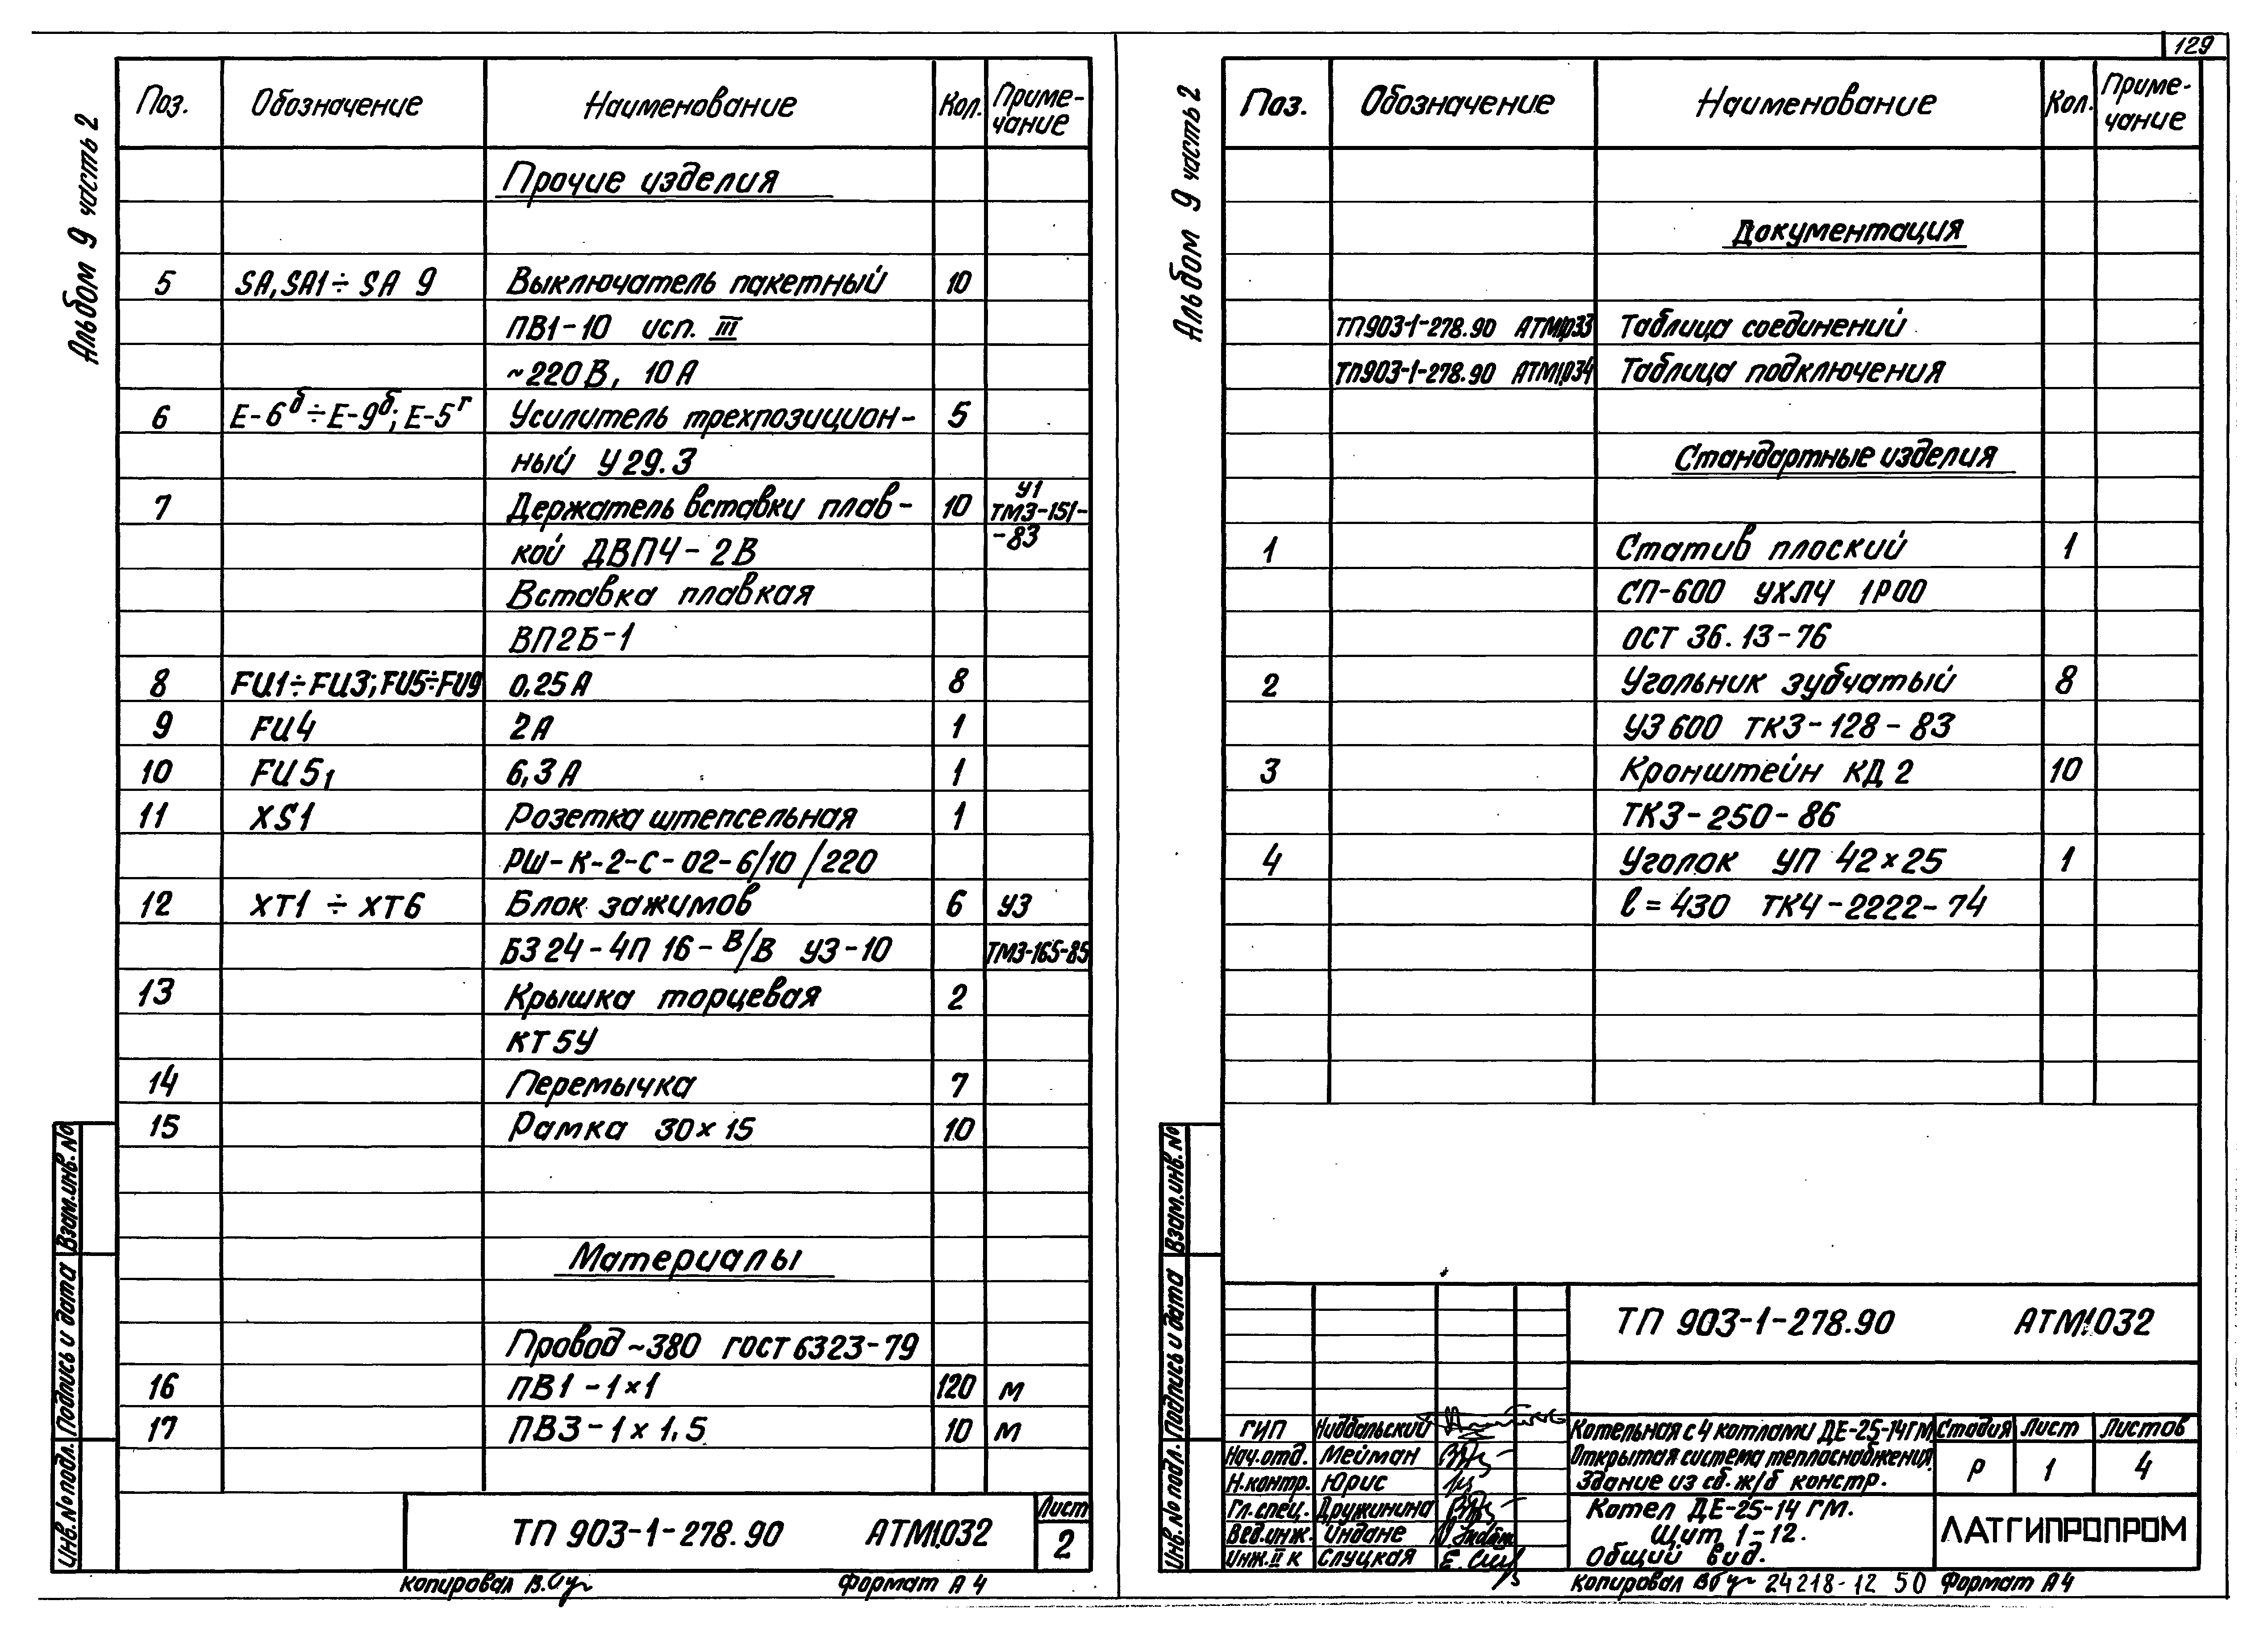 129
Альбом 9 часть 2
Поз. Обозначение Наименование Кол. Приме-
чание
Прочие изделия
5 SA, SA1 ÷ SA 9 Выключатель пакетный 10
ПВ1-10 исп. III
~220 В, 10 А
6 Е-6б ÷ Е-9б; Е-5г Усилитель трехпозицион- 5
ный У29.3
7 Держатель вставки плав- 10 У1
ТМ3-151-
-83
кой ДВП4-2В
Вставка плавкая
ВП2Б-1
8 FU1÷FU3; FU5÷FU9 0,25 А 8
9 FU4 2 А 1
10 FU5₁ 6,3 А 1
11 XS1 Розетка штепсельная 1
РШ-К-2-С-02-6/10/220
12 ХТ1 ÷ ХТ6 Блок зажимов 6 У3
БЗ 24-4П 16-В/В У3-10 ТМ3-165-85
13 Крышка торцевая 2
КТ5У
14 Перемычка 7
15 Рамка 30×15 10
Материалы
Провод ~380 ГОСТ 6323-79
16 ПВ1-1×1 120 м
17 ПВ3-1×1,5 10 м
Инв. № подл. Подпись и дата Взам.инв. №
ТП 903-1-278.90 АТМ1.032
Лист
2
Копировал Формат А4
Альбом 9 часть 2
Поз. Обозначение Наименование Кол. Приме-
чание
Документация
ТП903-1-278.90 АТМ1.033 Таблица соединений
ТП903-1-278.90 АТМ1.034 Таблица подключения
Стандартные изделия
1 Статив плоский 1
СП-600 УХЛ4 1Р00
ОСТ 36.13-76
2 Угольник зубчатый 8
УЗ 600 ТК3-128-83
3 Кронштейн КД 2 10
ТК3-250-86
4 Уголок УП 42×25 1
l=430 ТК4-2222-74
Инв. № подл. Подпись и дата Взам.инв. №
ТП 903-1-278.90 АТМ1.032
ГИП
Нач.отд. Мейман
Н.контр. Юрис
Гл.спец. Дружинина
Вед.инж. Индане
Инж. II к Слуцкая
Котельная с 4 котлами ДЕ-25-14ГМ
Открытая система теплоснабжения.
Здание из сб. ж/б констр.
Стадия Лист Листов
Р 1 4
Котел ДЕ-25-14 ГМ.
Щит 1-12.
Общий вид.
ЛАТГИПРОПРОМ
Копировал 24218-12 50 Формат А4